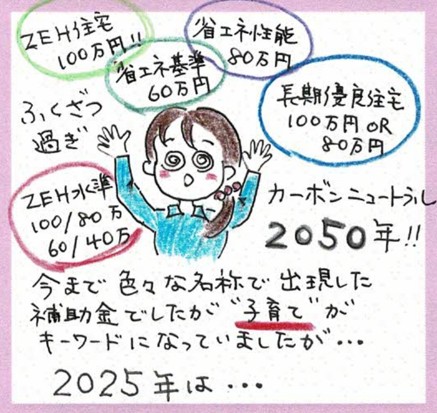 ZEH住宅
100万円!!
省エネ性能
80万円
省エネ基準
60万円
長期優良住宅
100万円 OR
80万円
ふくざつ
過ぎ
ZEH水準
100/80万
60/40万
カーボンニュートラル
2050年!!
今まで色々な名称で出現した
補助金でしたが“子育て”が
キーワードになっていましたが…
2025年は…